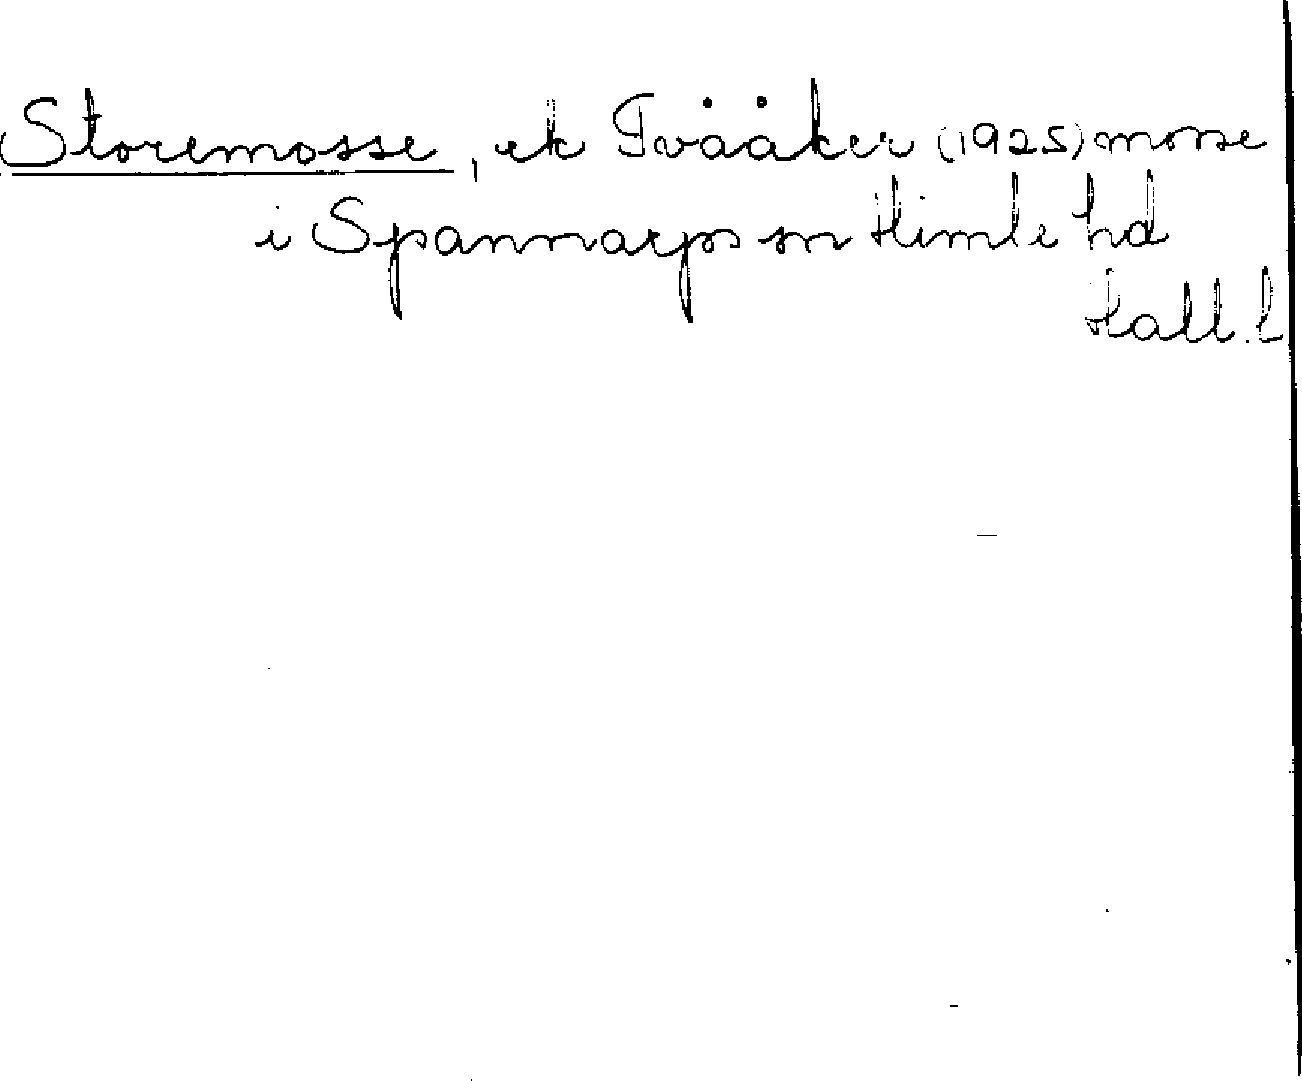 Storemosse, ek Tvååker (1925) mosse
i Spannarps sn Himle hd
Hall. l